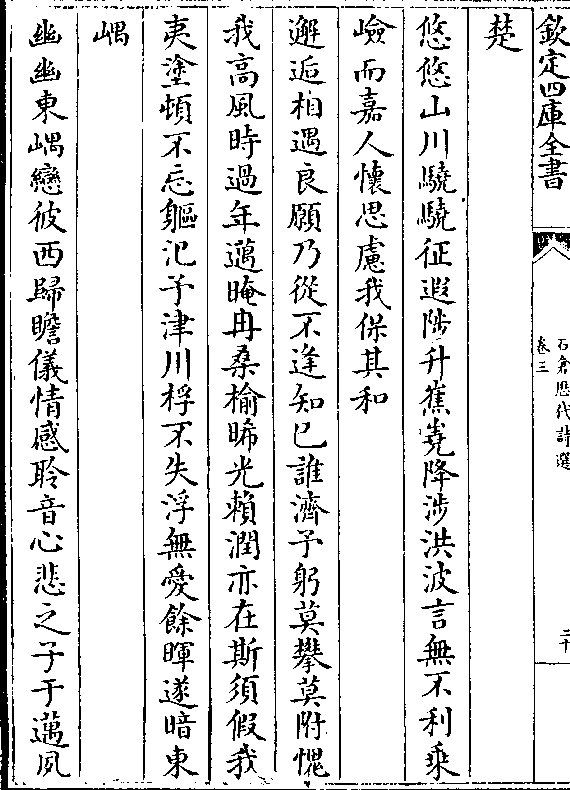 欽定四庫全書
石倉歴代詩選
卷三
二十
楚
悠悠山川驍驍征遐陟升嶣嶢降涉洪波言無不利乘
嶮而嘉人懷思慮我保其和
邂逅相遇良願乃從不逢知己誰濟予躬莫攀莫附愧
我高風時過年邁晻冉桑榆晞光賴潤亦在斯須假我
夷塗頓不忘軀氾予津川桴不失浮無愛餘暉遂暗東
嵎
幽幽東嵎戀彼西歸瞻儀情感聆音心悲之子于邁夙